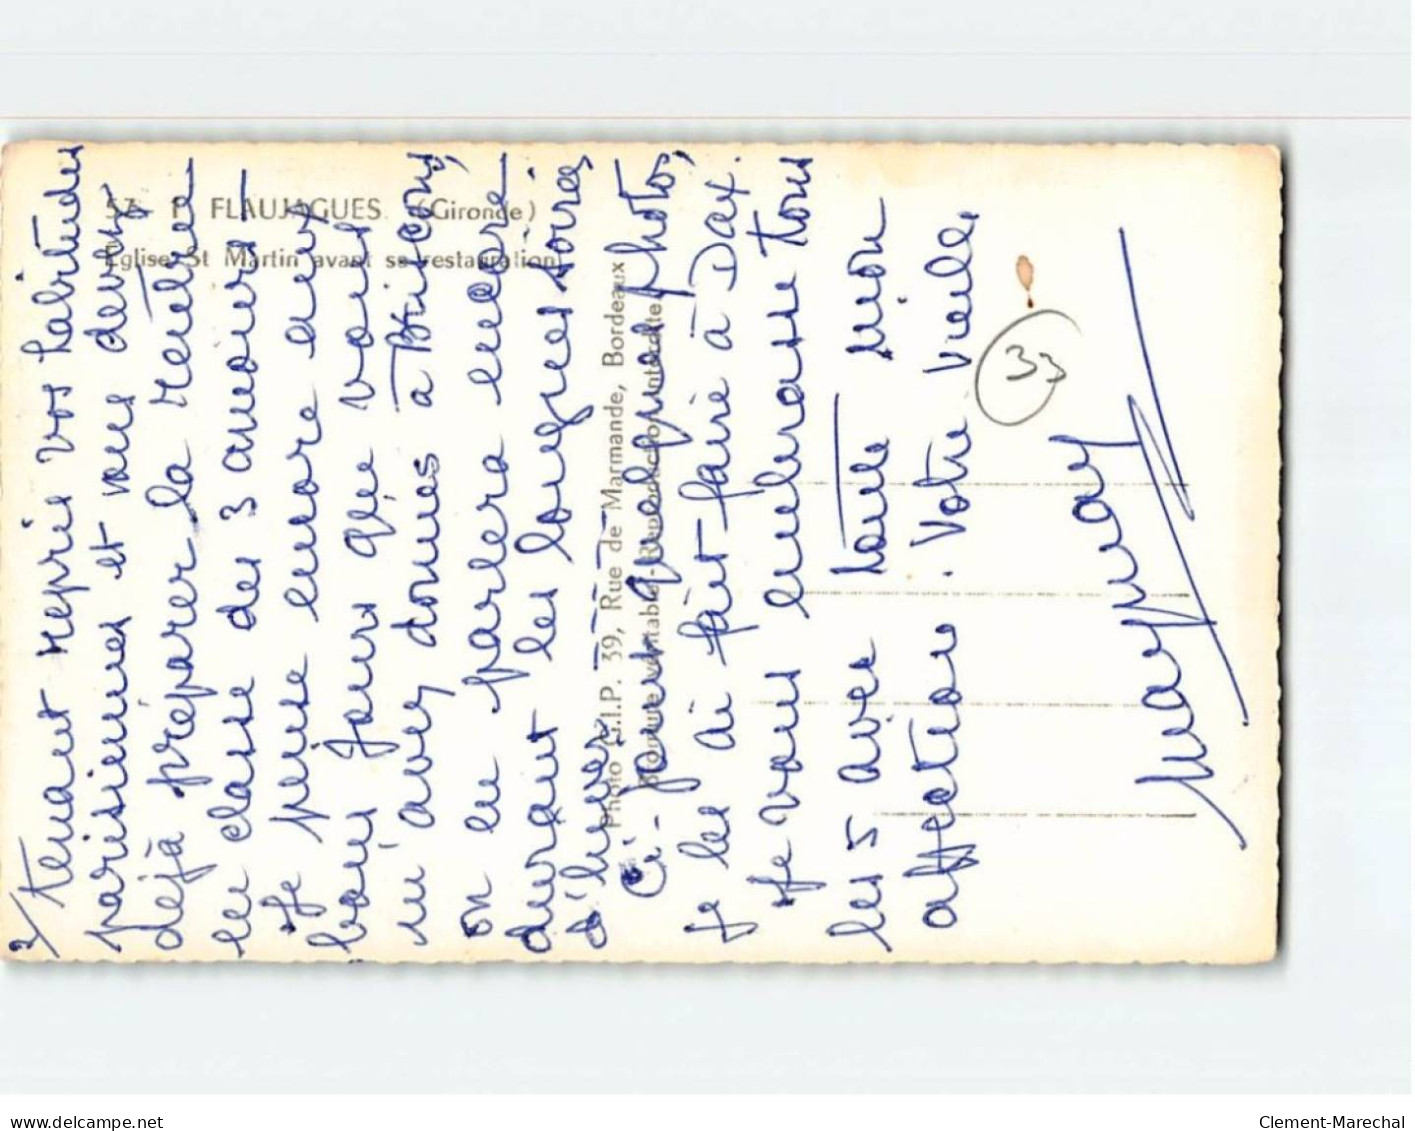 2/ tenant repris vos habitudes
parisiennes et vous devez
déjà préparer la rentrée
en classe des 3 amours !
Je pense encore aux
bons jours que vous
m'avez donnés à Briscous,
on en parlera encore
durant les longues soirées
d'hiver -
Ci-joint quelques photos,
je les ai fait faire à Dax.
Je vous embrasse tous
les 5 avec toute mon
affection. Votre vieille
57 - P FLAUJAGUES (Gironde)
Eglise St Martin avant sa restauration
Photo G.I.P. 39, Rue de Marmande, Bordeaux
Bromure véritable - Reproduction interdite
33
delcampe.net
Clement-Marechal